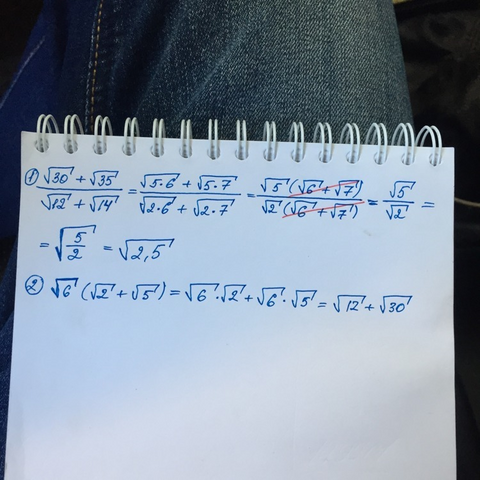 ① (√30 + √35)/(√12 + √14) = (√5·6 + √5·7)/(√2·6 + √2·7) = (√5 (√6 + √7))/(√2 (√6 + √7)) = √5/√2 =
= √(5/2) = √2,5
② √6 (√2 + √5) = √6 · √2 + √6 · √5 = √12 + √30